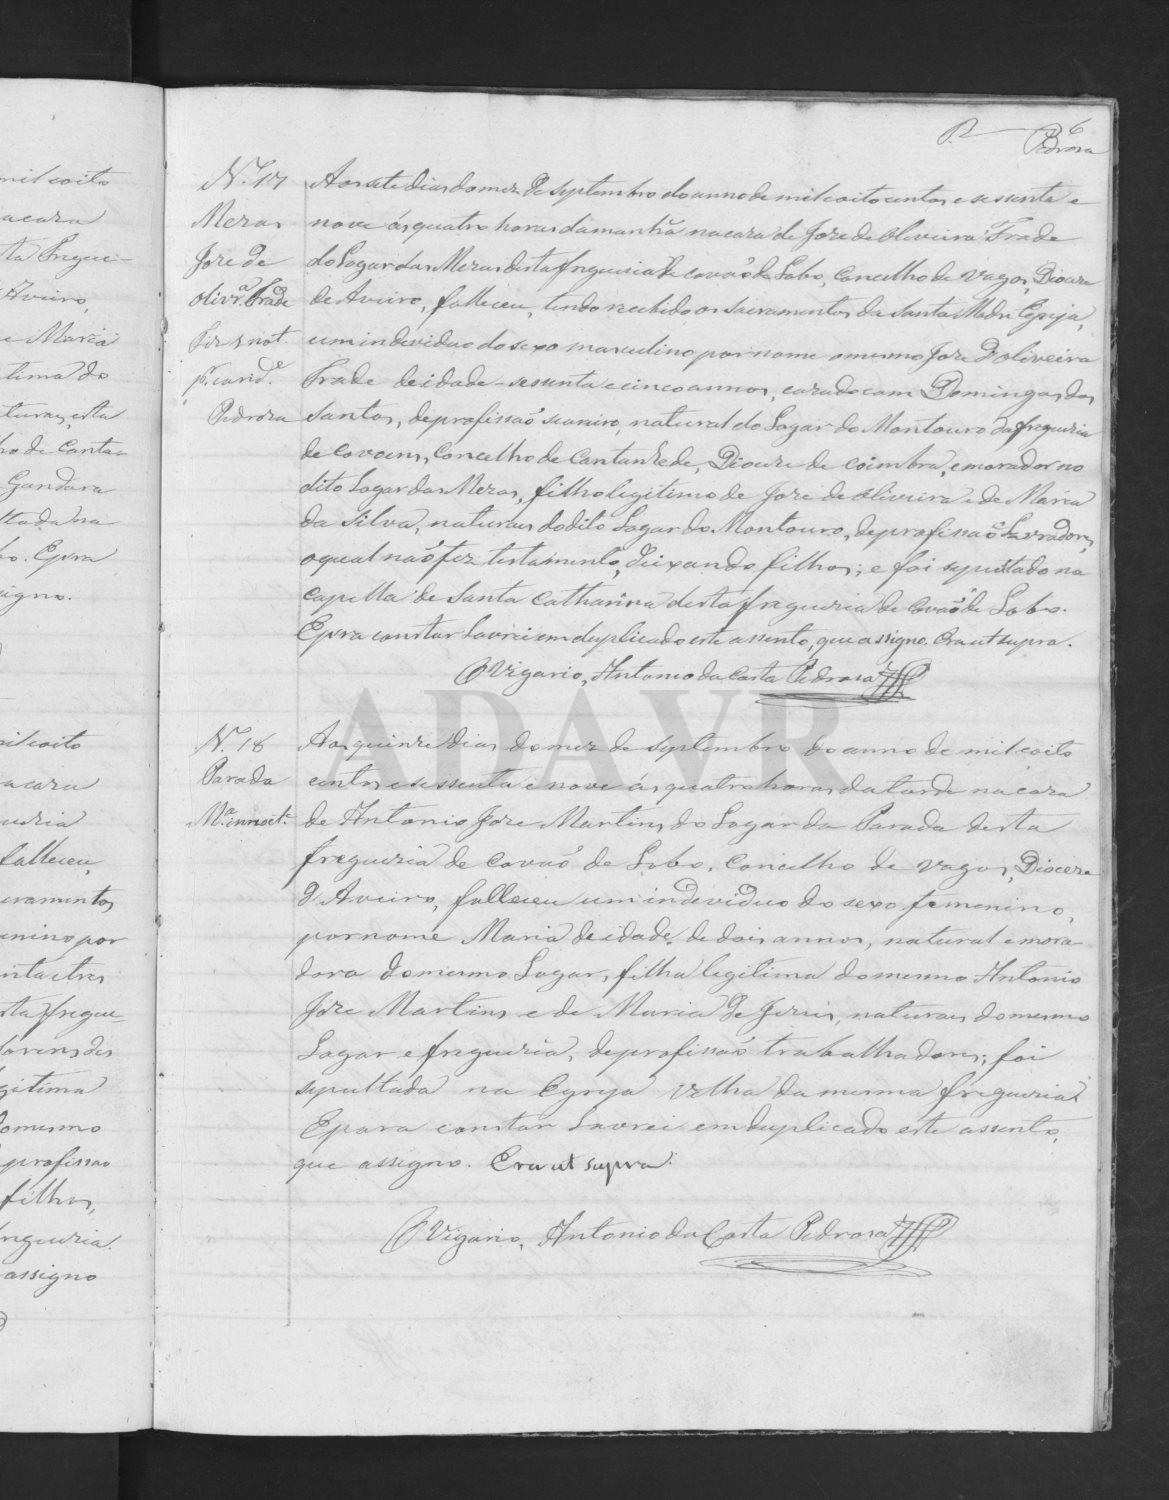 6
Pedrosa
N.º 17
Mezas
Joze de
Olivr.ª Frade
Fez 3 not.
p.r carid.e
Pedroza
Aos sete dias do mez de Septembro do anno de mil oito centos e sessenta e
nove ás quatro horas da manhã na caza de Joze de Oliveira Frade
do Lugar das Mezas desta freguezia de Covaõ de Lobo, Concelho de Vagos, Dioceze
de Aveiro, falleceu, tendo recebido os Sacramentos da Santa Madre Egreja,
um individuo do sexo masculino por nome o mesmo Joze d'Oliveira
Frade de idade - sessenta e cinco annos, cazado com Domingas dos
Santos, de profissaõ, natural do Lugar do Montouro da freguezia
de Covoens, Concelho de Cantanhede, Dioceze de Coimbra, e morador no
dito Lugar das Mezas, filho legitimo de Joze de Oliveira e de Maria
da Silva, naturaes do dito Lugar do Montouro, de profissaõ Lavradores,
o qual naõ fez testamento, deixando filhos; e foi sepultado na
capella de Santa Catharina desta freguezia de Covaõ de Lobo.
E pra constar Lavrei em duplicado este assento, que assigno. Era ut supra.
O Vigario, Antonio da Costa Pedrosa
N.º 18
Parada
M.ª innoct.e
Aos quinze dias do mez de Septembro do anno de mil oito
centos e sessenta e nove ás quatro horas da tarde na caza
de Antonio Joze Martins do Lugar da Parada desta
freguezia de Covaõ de Lobo, Concelho de Vagos, Diocese
d'Aveiro, falleceu um individuo do sexo femenino,
por nome Maria de idade, de dois annos, natural e mora
dora do mesmo Lugar, filha legitima do mesmo Antonio
Joze Martins e de Maria de Jezus, naturaes do mesmo
Lugar e freguezia, de profissaõ trabalhadores; foi
sepultada na Egreja velha da mesma freguezia.
E para constar Lavrei em duplicado este assento,
que assigno. Era ut supra.
O Vigario, Antonio da Costa Pedrosa
ADAVR